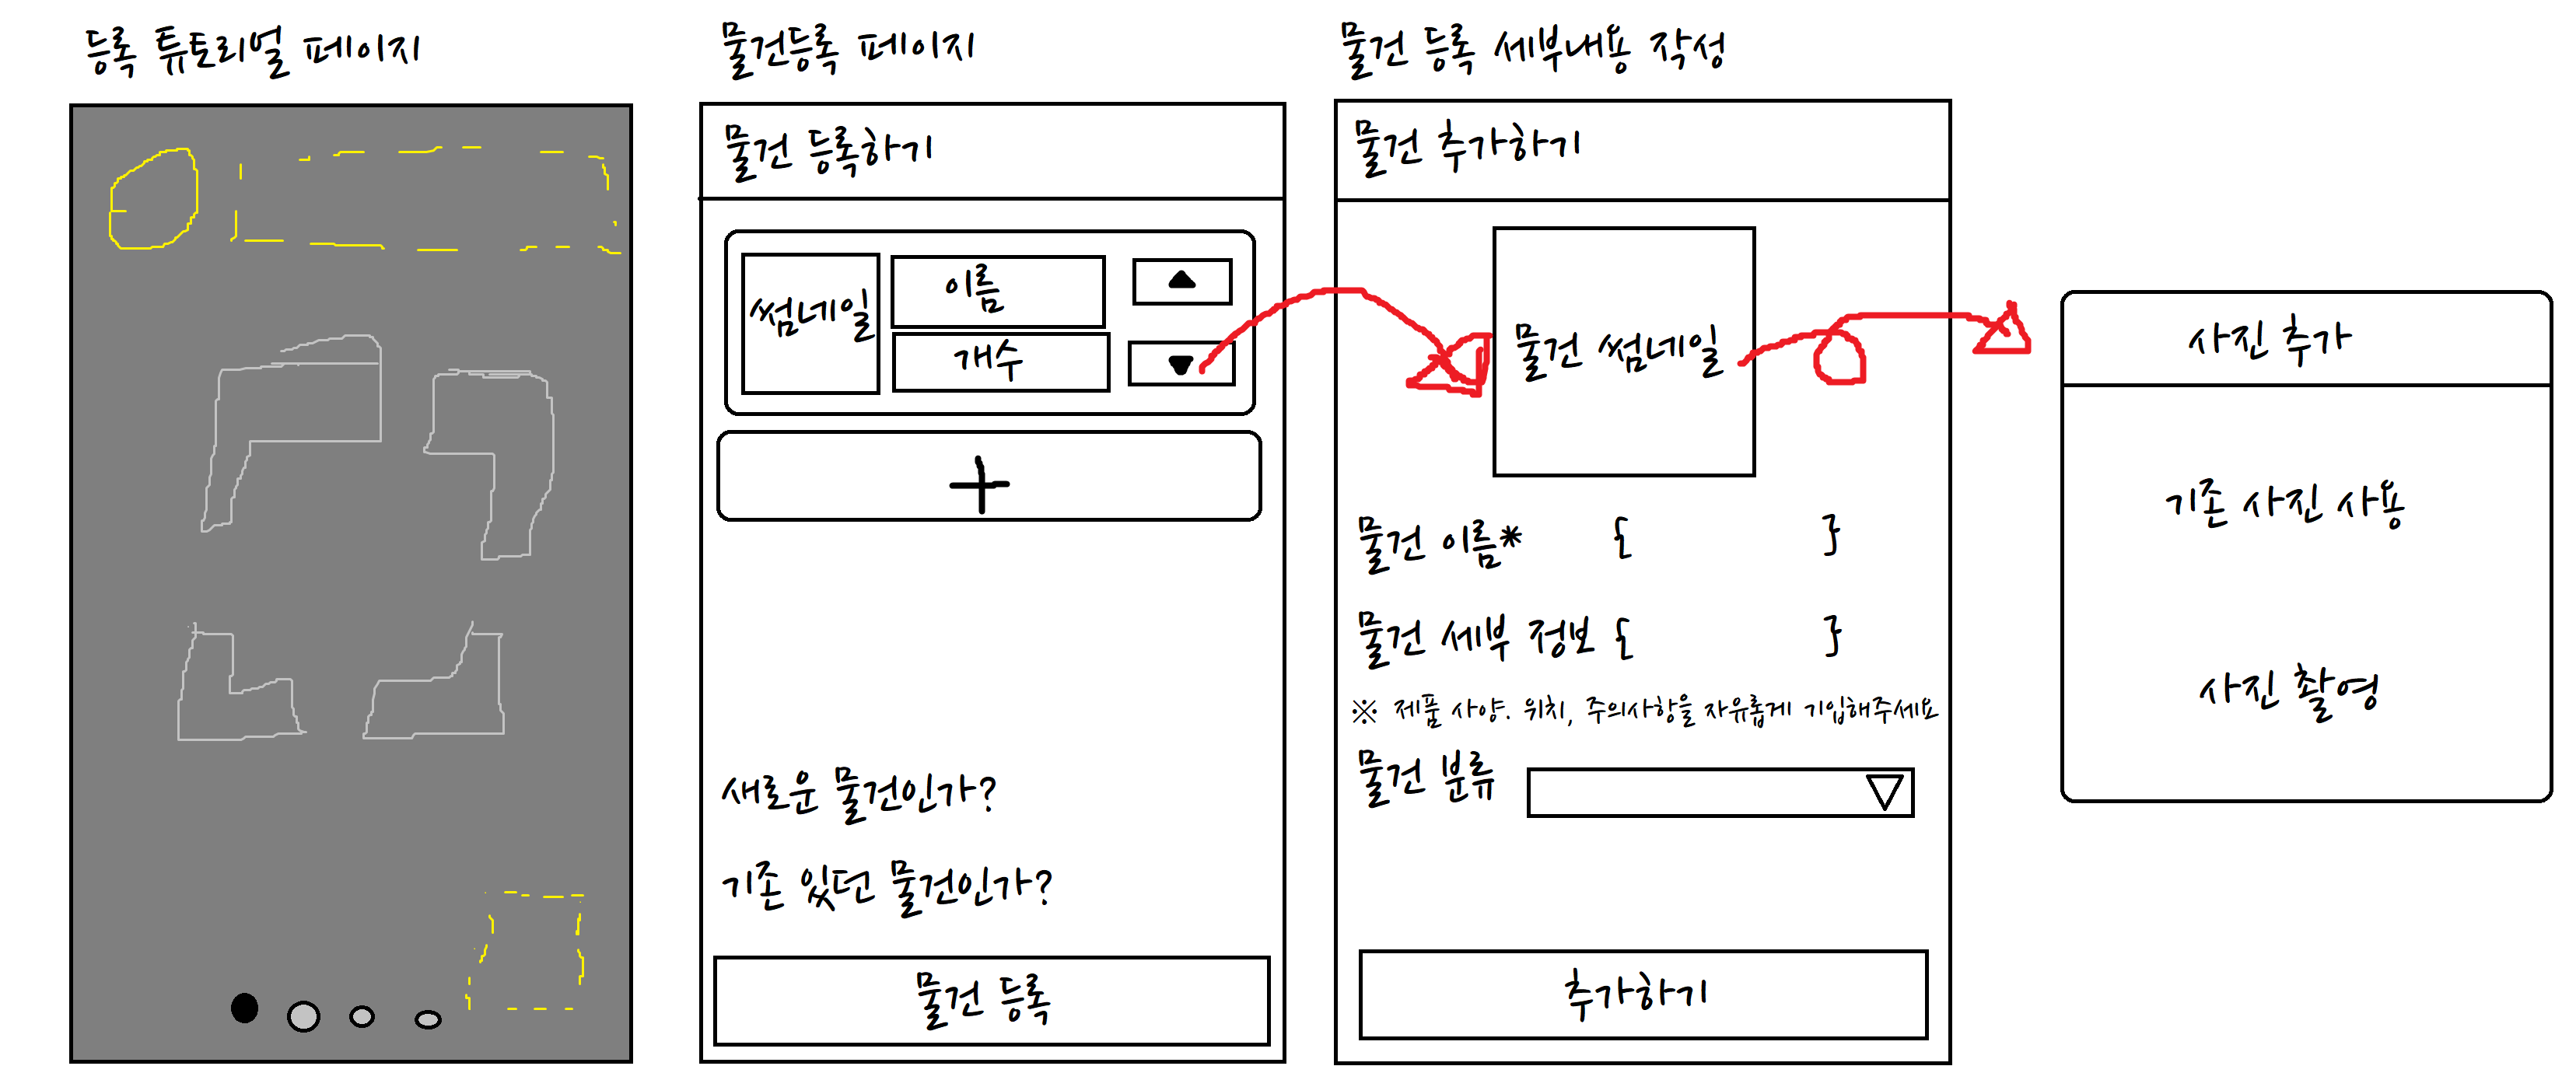 등록 튜토리얼 페이지
물건등록 페이지
물건 등록하기
썸네일
이름
개수
▲
▼
+
새로운 물건인가?
기존 있던 물건인가?
물건 등록
물건 등록 세부내용 작성
물건 추가하기
물건 썸네일
물건 이름* { }
물건 세부 정보 { }
※ 제품 사양. 위치, 주의사항을 자유롭게 기입해주세요
물건 분류
추가하기
사진 추가
기존 사진 사용
사진 촬영